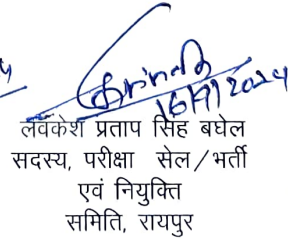 16/9/2024
लवकेश प्रताप सिंह बघेल
सदस्य, परीक्षा सेल/भर्ती
एवं नियुक्ति
समिति, रायपुर